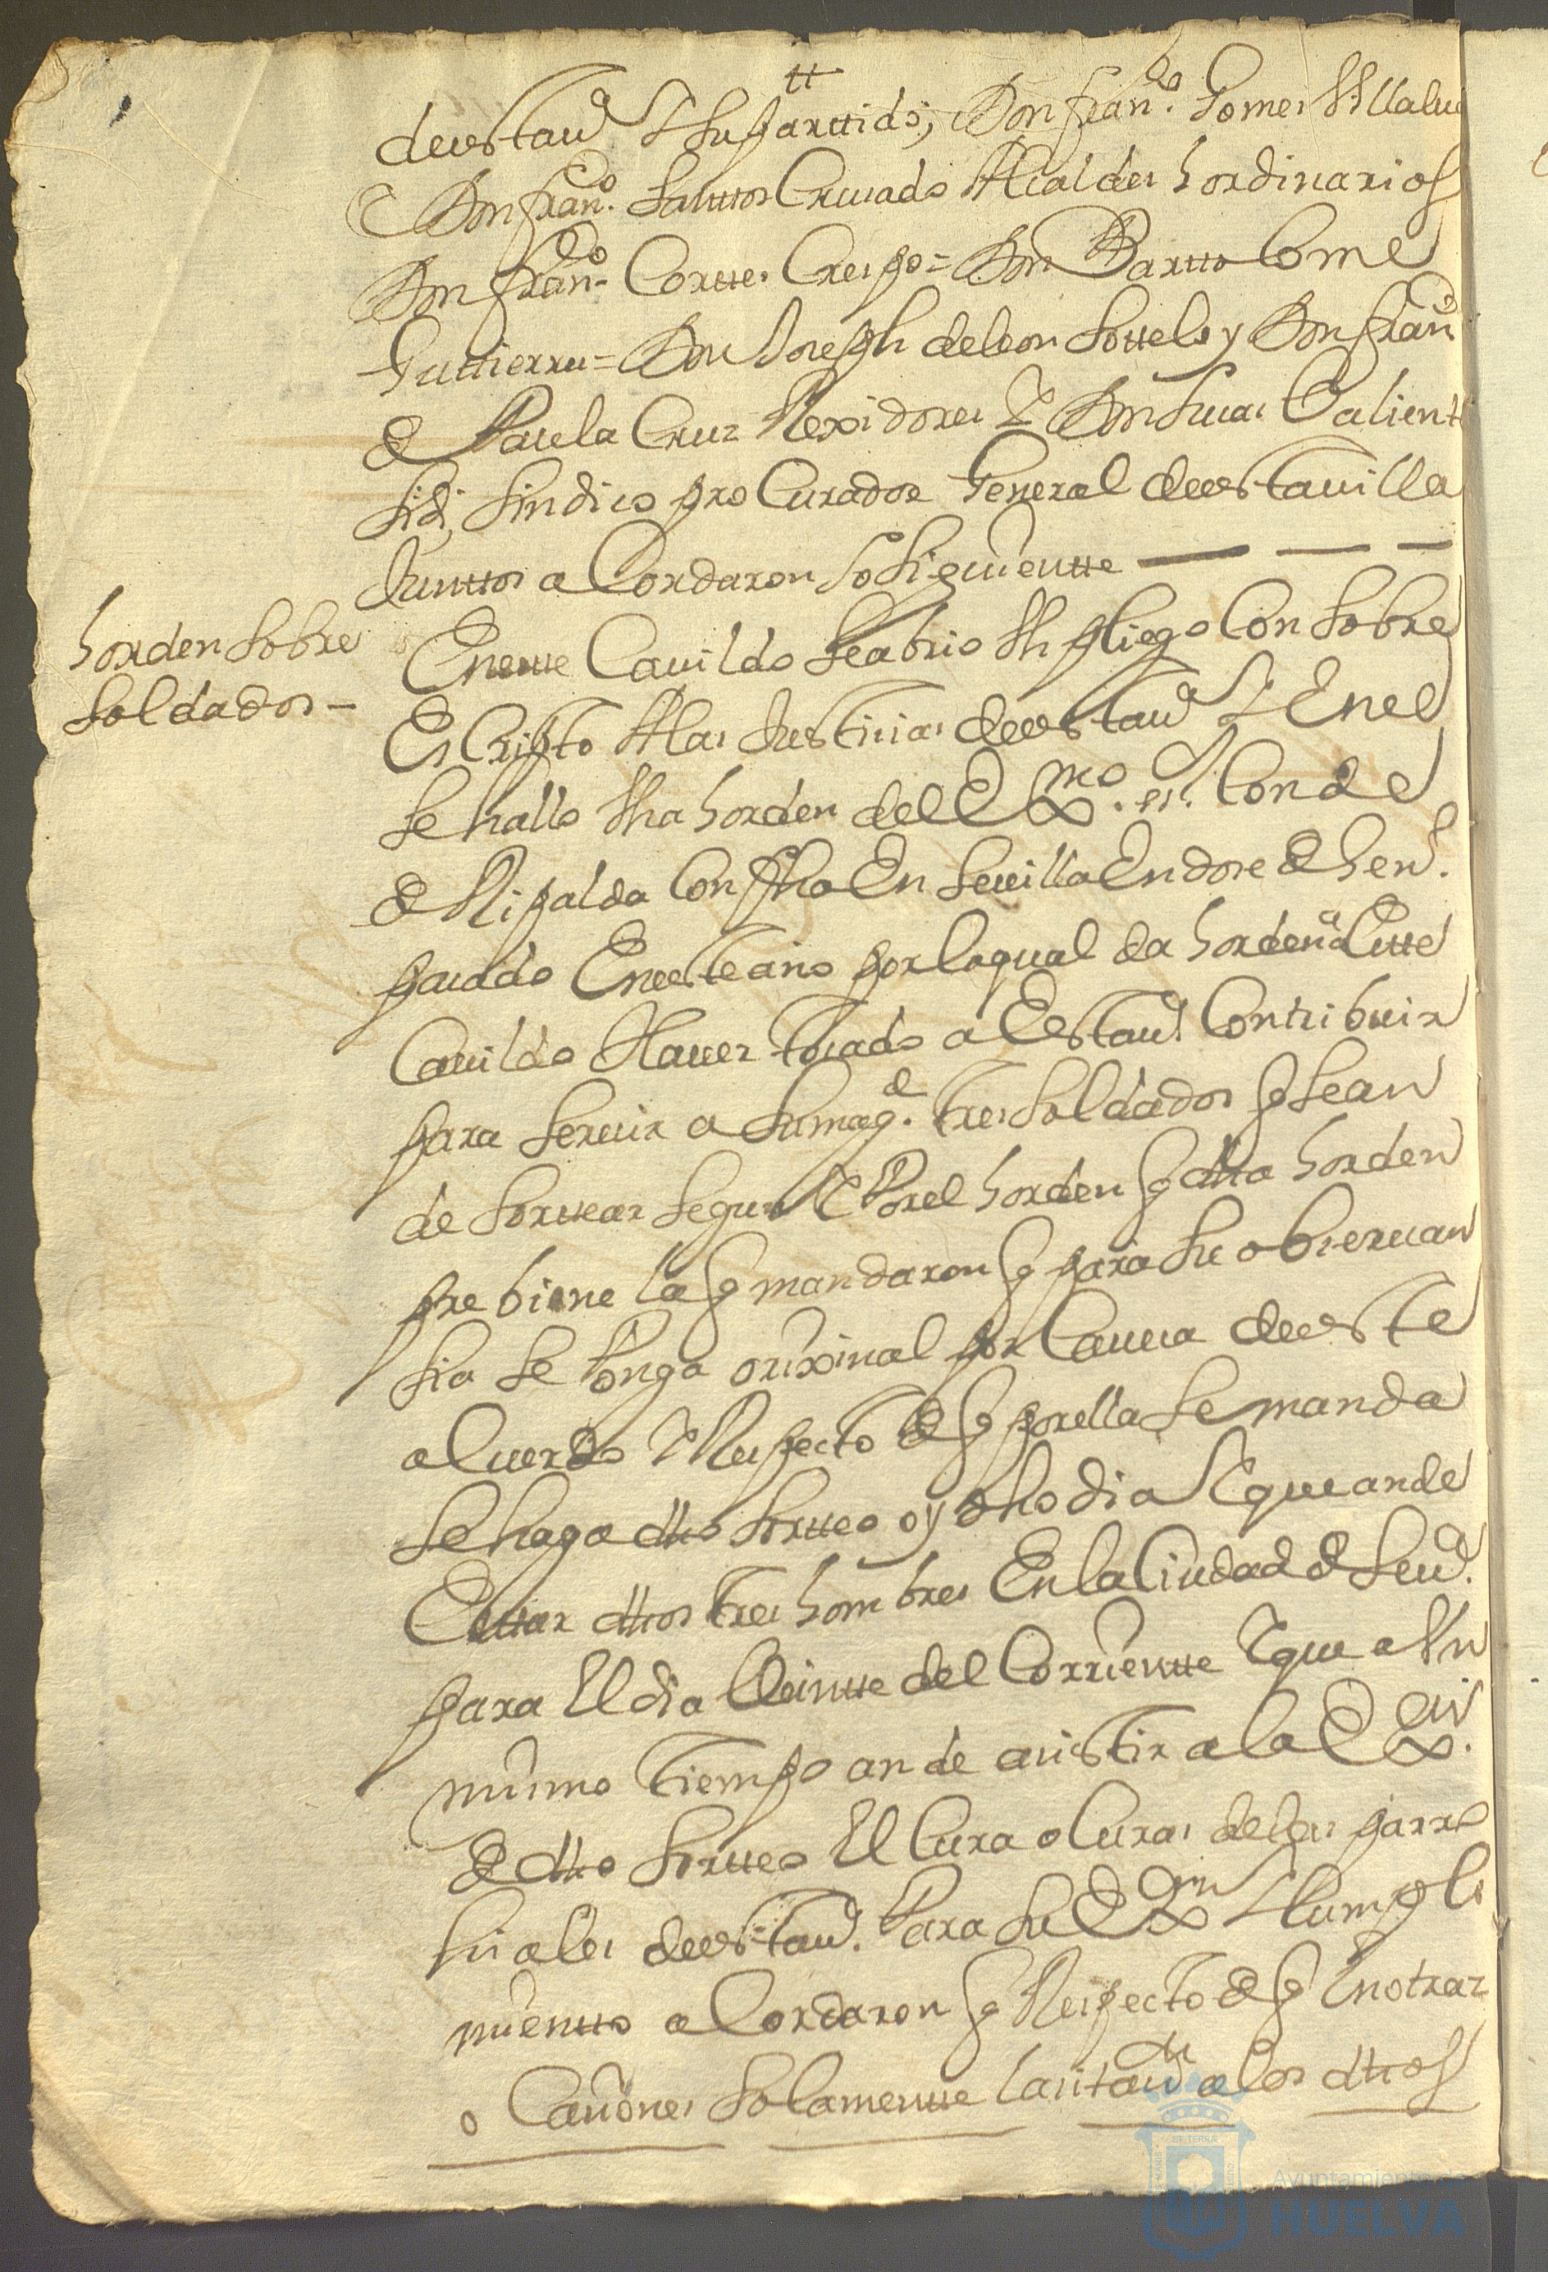 de esta uª Y su partido; Don franco. Gomes Villalua
E Don franco. Santtos Cruzado Alcaldes hordinarios
Don franco. Corttes Crespo = Don Barttolome
Guttierres = Don Joseph de leon Sottelo y Don franco
de Paula Cruz Rexidores Y Don Juan Valiente
Sidi, Sindico procurador General de esta uilla
Junttos acordaron lo siguientte
horden sobre
soldados -
En este Cauildo se abrio Un pliego Con sobre
Escripto A las Justicias de esta uª Y En el
se hallo Una horden del Exmo. Sr. Conde
de Ripalda Con fha En Seuilla En dose de hen.
pasado En este año por la qual da horden a Este
Cauildo Hauer tocado a Esta uª Contribuir
para seruir a Su magd. tres soldados q sean
de sorttear segun Y Por el horden q dha horden
prebiene la q mandaron q para su obseruan
sia se Ponga orixinal por Cauesa de este
acuerdo Y Respecto de q por ella se manda
se haga dho sortteo oy dho dia Y que an de
Esttar dhos tres hombres En la Ciudad de Seuª.
para El dia Veintte del Corrientte Y que a Un
mismo tiempo an de asistir a la Exon.
de dho sortteo El Cura o Curas de las parro
quiales de esta uª. Para su Exon Y Cumpli
mientto acordaron q Respecto de q En otras
ocasiones solamentte la sitaon a los dhos
Ayuntamiento de
HUELVA